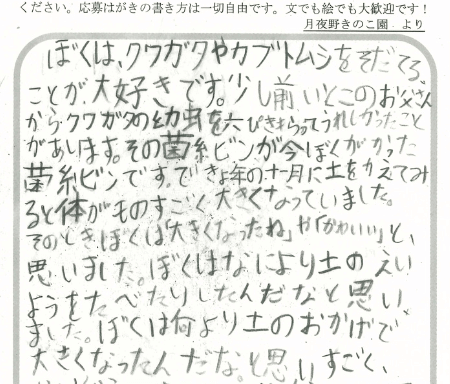 ください。応募はがきの書き方は一切自由です。文でも絵でも大歓迎です！
月夜野きのこ園　より
ぼくは、クワガタやカブトムシをそだてる
ことが、大好きです。少し前いとこのお父さん
からクワガタの幼虫を六ぴきもらってうれしかったこと
があります。その菌糸ビンが今ぼくがかった
菌糸ビンです。できょ年の十一月に土をかえてみ
ると体がものすごく大きくなっていました。
そのときぼくは「大きくなったね」や「かわいい」と、
思いました。ぼくはなにより土のえい
ようをたべたりしたんだなと思い
ました。ぼくは何より土のおかげで
大きくなったんだな。と思いすごく、